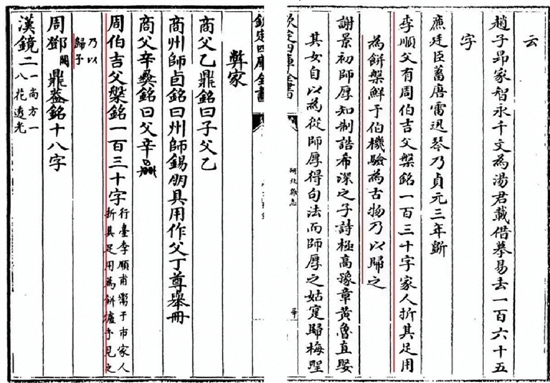 云
趙子昂家智永千文為湯君載借摹易去一百六十五
字
廷臣蓄唐雷迅琴乃貞元三年斵
李順父有周伯吉父槃銘一百三十字家人折其足用
為餅槃鮮于伯機驗為古物乃以歸之
謝景初師厚知制誥希深之子詩極高豫章黃魯直娶
其女自以為從師厚得句法而師厚之姑寔歸梅聖
研北雜志
欽定四庫全書
彝家
商父乙鼎銘曰子父乙
商州師卣銘曰州師錫朋貝用作父丁尊舉冊
商父辛彝銘曰父辛
周伯吉父槃銘一百三十字 行臺李順甫鬻于市家人
折其足用為餅爐予見之
乃以
歸予
周鄧鼎葢銘十八字
漢鏡二 一尚方一
八花透光